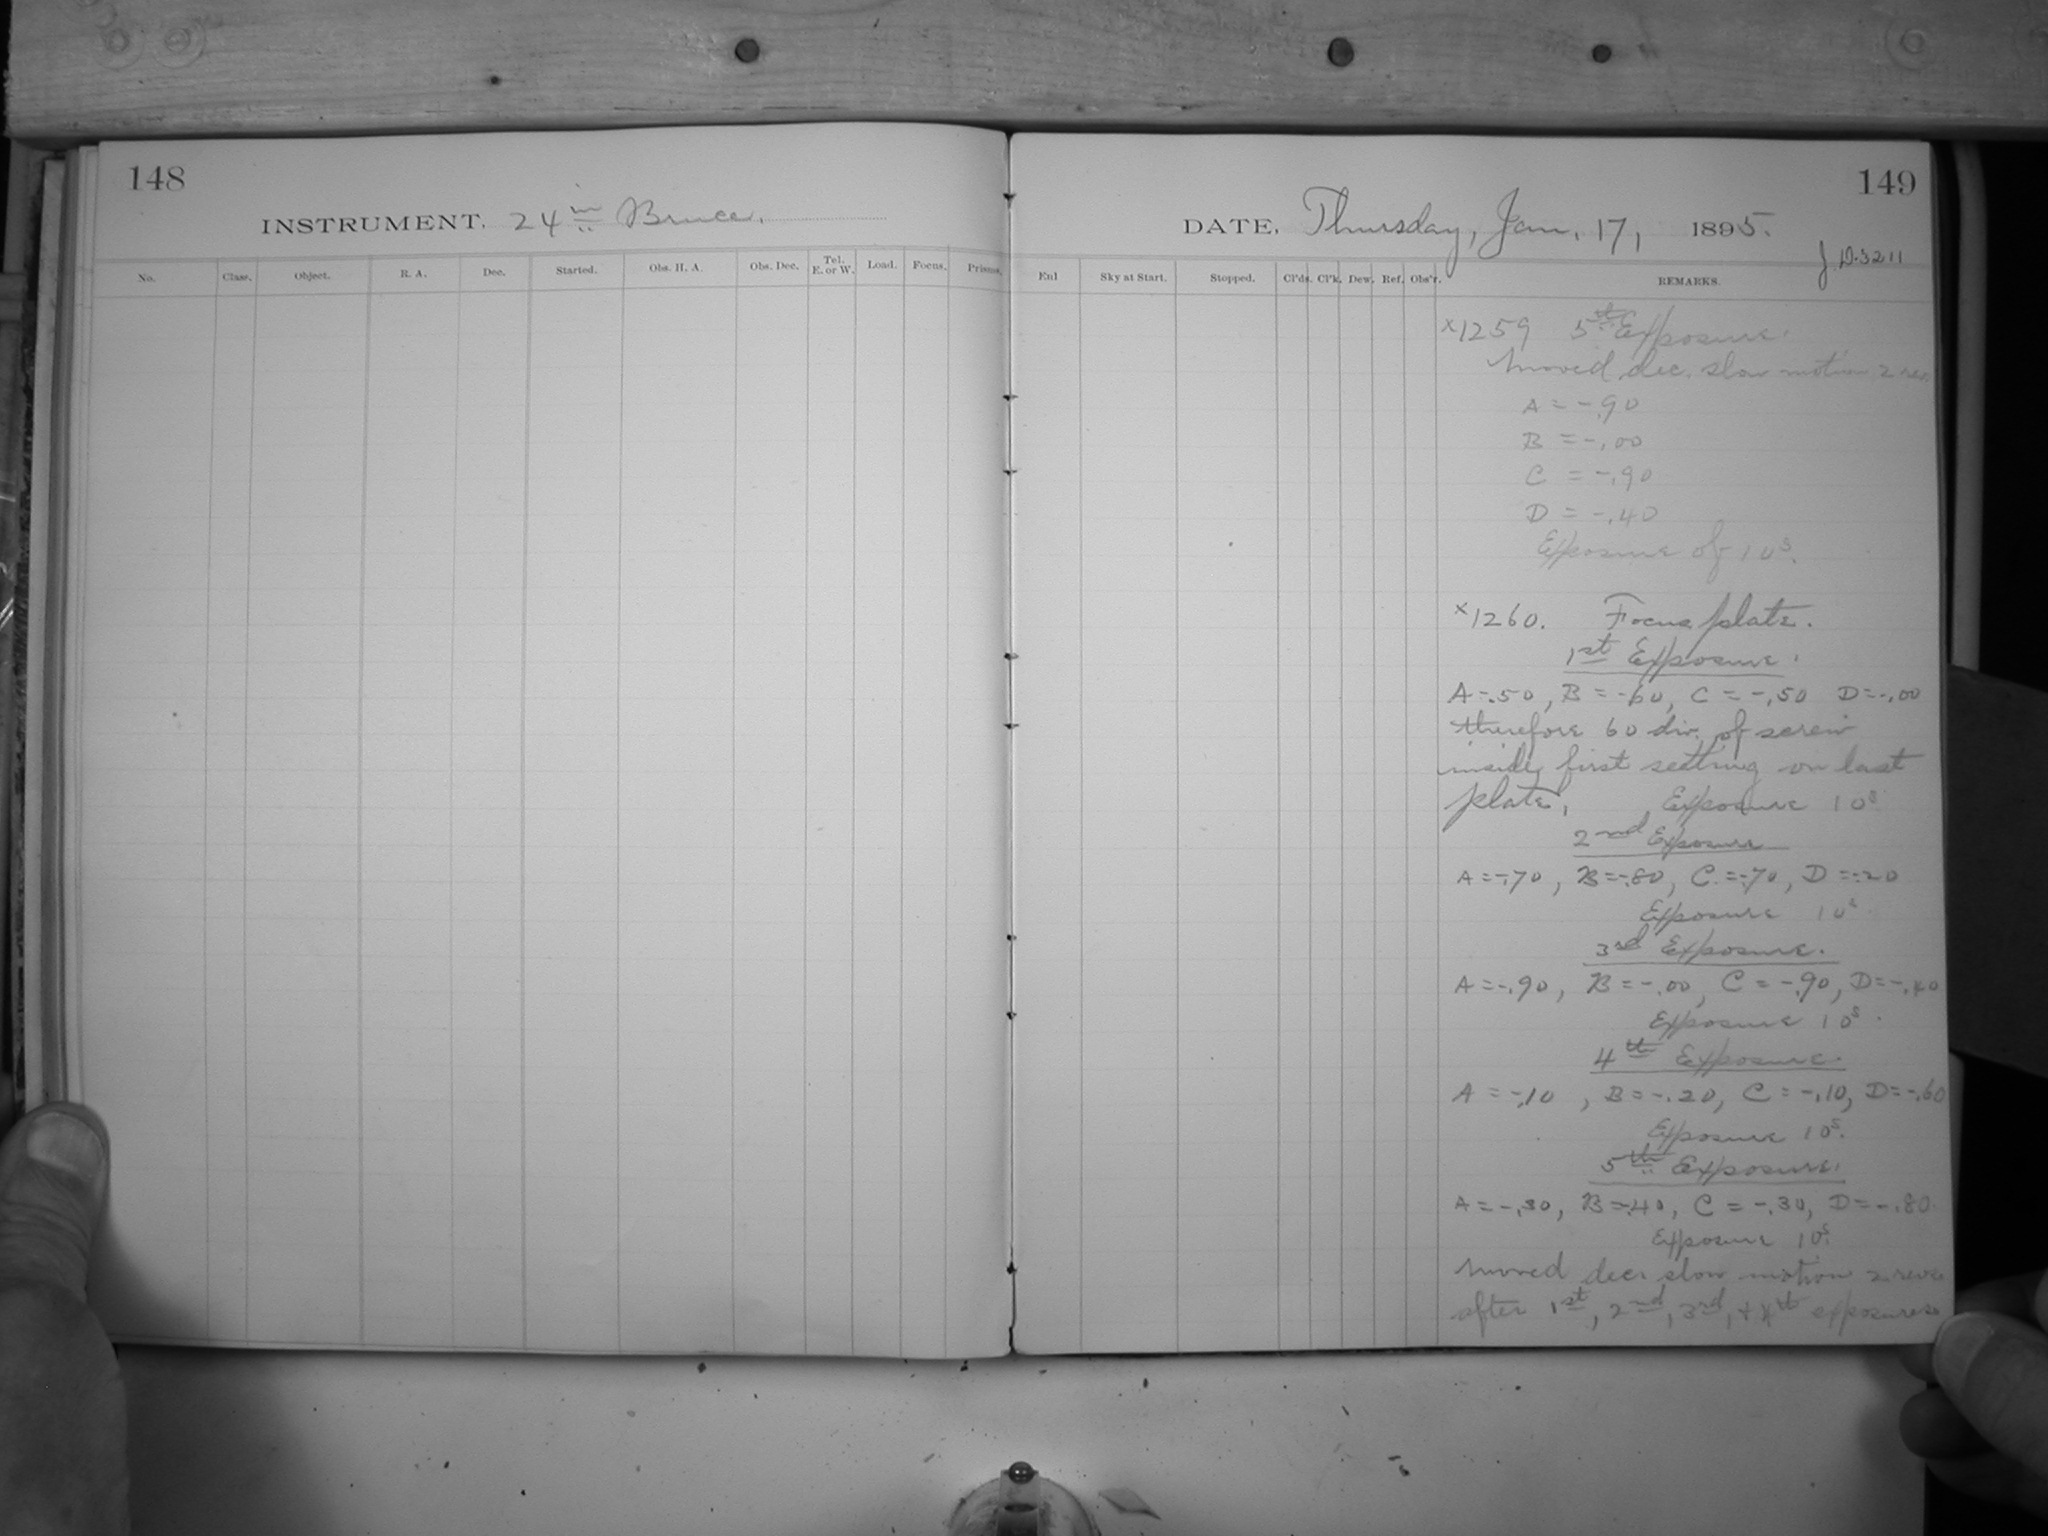 148
INSTRUMENT. 24 in Bruce.
No. Class. Object. R. A. Dec. Started. Obs. H. A. Obs. Dec. Tel. E. or W. Load. Focus. Prisms.
149
DATE, Thursday, Jan. 17, 1895.
J.D. 3211
Enl Sky at Start. Stopped. Cl'ds. Cl'k. Dew. Ref. Obs'r. REMARKS.
x1259 5th Exposure.
Moved dec. slow motion 2 rev.
A = -.90
B = -.00
C = -.90
D = -.40
Exposure of 10s.
x1260. Focus plate.
1st Exposure.
A = .50, B = -60, C = -.50 D = -.00
therefore 60 div. of screw
inside first setting on last
plate, Exposure 10s
2nd Exposure
A = -.70, B = -.80, C. = -.70, D = -.20
Exposure 10s
3rd Exposure.
A = -.90, B = -.00, C = -.90, D = -.40
Exposure 10s.
4th Exposure.
A = -.10, B = -.20, C = -.10, D = -.60
Exposure 10s.
5th Exposure.
A = -.30, B = -.40, C = -.30, D = -.80
Exposure 10s.
Moved dec. slow motion 2 revs
after 1st, 2nd, 3rd, + 4th exposures